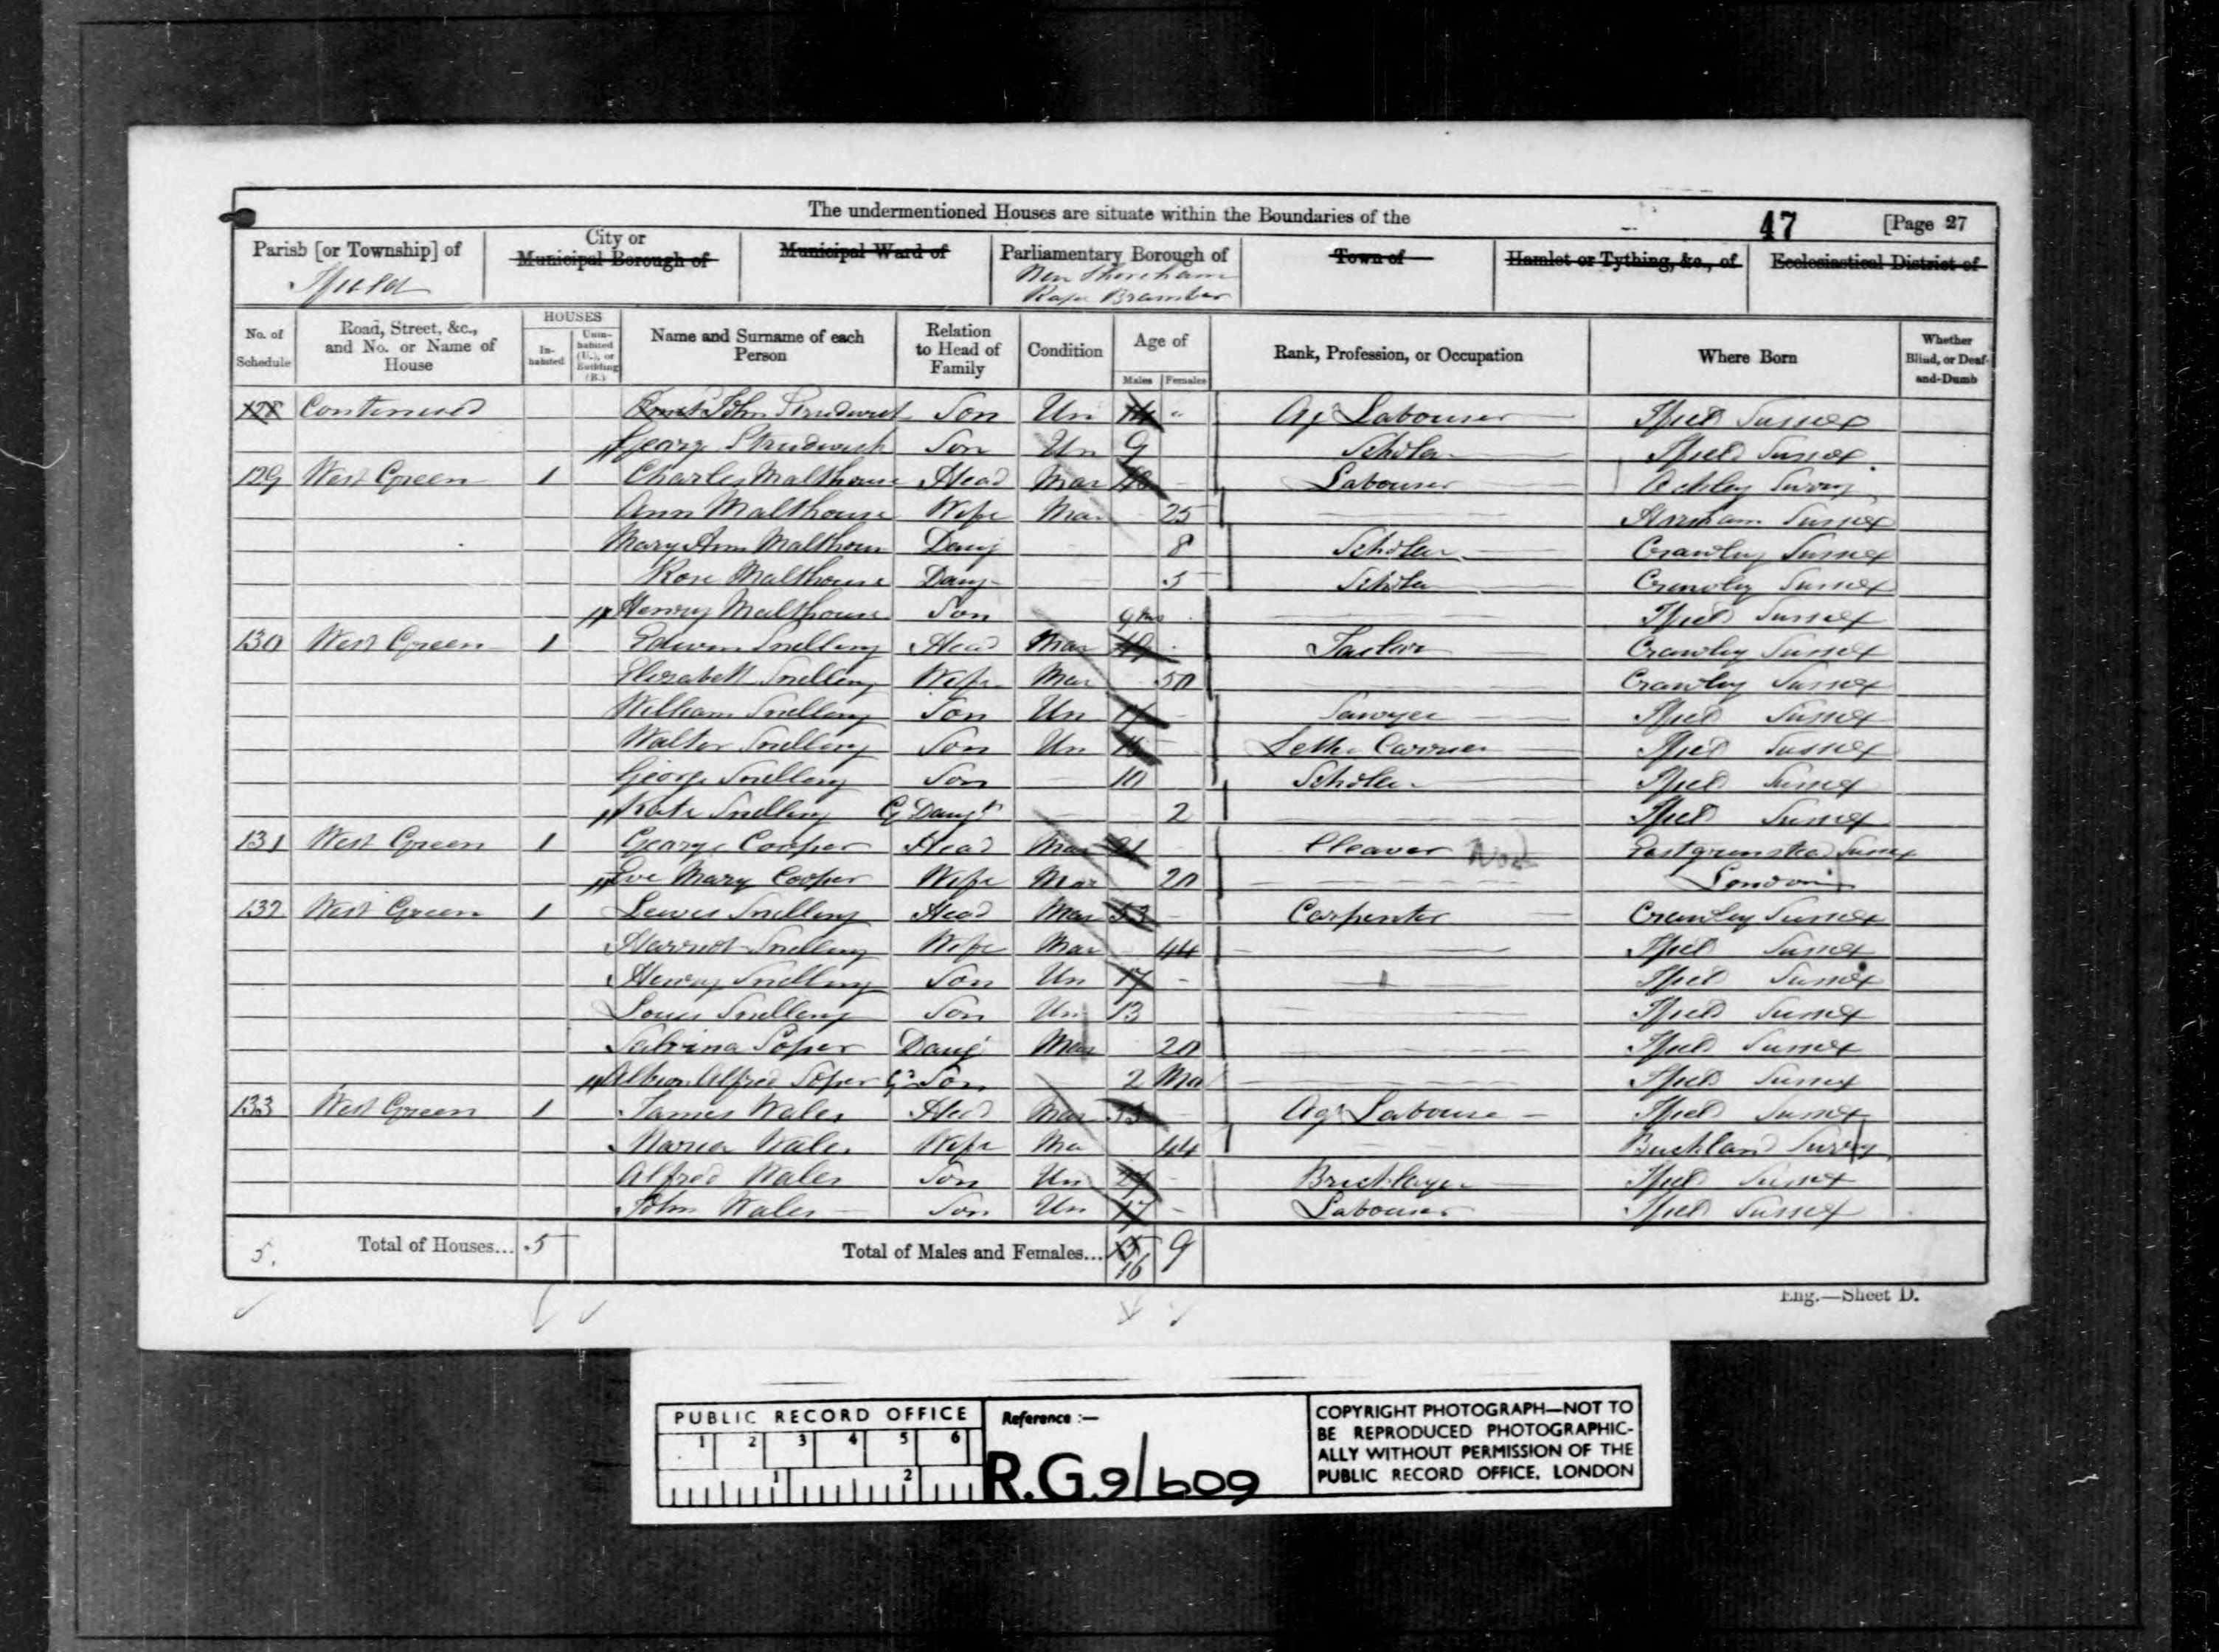 The undermentioned Houses are situate within the Boundaries of the
47 [Page 27
Parish [or Township] of City or Municipal Borough of Municipal Ward of Parliamentary Borough of Town of Hamlet or Tything, &c., of Ecclesiastical District of
Ifield New Shoreham
Rape Bramber
No. of Schedule Road, Street, &c., and No. or Name of House HOUSES Inhabited Uninhabited (U.), or Building (B.) Name and Surname of each Person Relation to Head of Family Condition Age of Males Females Rank, Profession, or Occupation Where Born Whether Blind, or Deaf-and-Dumb
128 Continued John Strudwick Son Un 14 " Ag Labourer Ifield Sussex
George Strudwick Son Un 9 Scholar Ifield Sussex
129 West Green 1 Charles Malthouse Head Mar Labourer Ockley Surrey
Ann Malthouse Wife Mar 25 Sussex
Mary Ann Malthouse Daug 8 Scholar Crawley Sussex
Rose Malthouse Daug 5 Scholar Crawley Sussex
Henry Malthouse Son 9 mo Ifield Sussex
130 West Green 1 Edwin Snelling Head Mar Tailor Crawley Sussex
Elizabeth Snelling Wife Mar 50 Crawley Sussex
William Snelling Son Un Sawyer Ifield Sussex
Walter Snelling Son Un Ifield Sussex
George Snelling Son 10 Scholar Ifield Sussex
Kate Snelling G Daugr 2 Ifield Sussex
131 West Green 1 George Cooper Head Mar 21 Cleaver Wood Eastgrinstead Sussex
Eve Mary Cooper Wife Mar 20 London
132 West Green 1 Lewis Snelling Head Mar 53 Carpenter Crawley Sussex
Harriot Snelling Wife Mar 44 Ifield Sussex
Henry Snelling Son Un 17 Ifield Sussex
Louis Snelling Son Un 13 Ifield Sussex
Sabrina Soper Daug Mar 20 Ifield Sussex
Albion Alfred Soper G Son 2 Mo Ifield Sussex
133 West Green 1 James Wales Head Mar Ag Labourer Ifield Sussex
Maria Wales Wife Ma 44 Buckland Surrey
Alfred Wales Son Un Bricklayer Ifield Sussex
John Wales Son Un 17 Labourer Ifield Sussex
5. Total of Houses... 5 Total of Males and Females... 15 9
16
Eng.—Sheet D.
PUBLIC RECORD OFFICE
1 2 3 4 5 6
1 2
Reference :—
R.G. 9/609
COPYRIGHT PHOTOGRAPH—NOT TO
BE REPRODUCED PHOTOGRAPHIC-
ALLY WITHOUT PERMISSION OF THE
PUBLIC RECORD OFFICE, LONDON